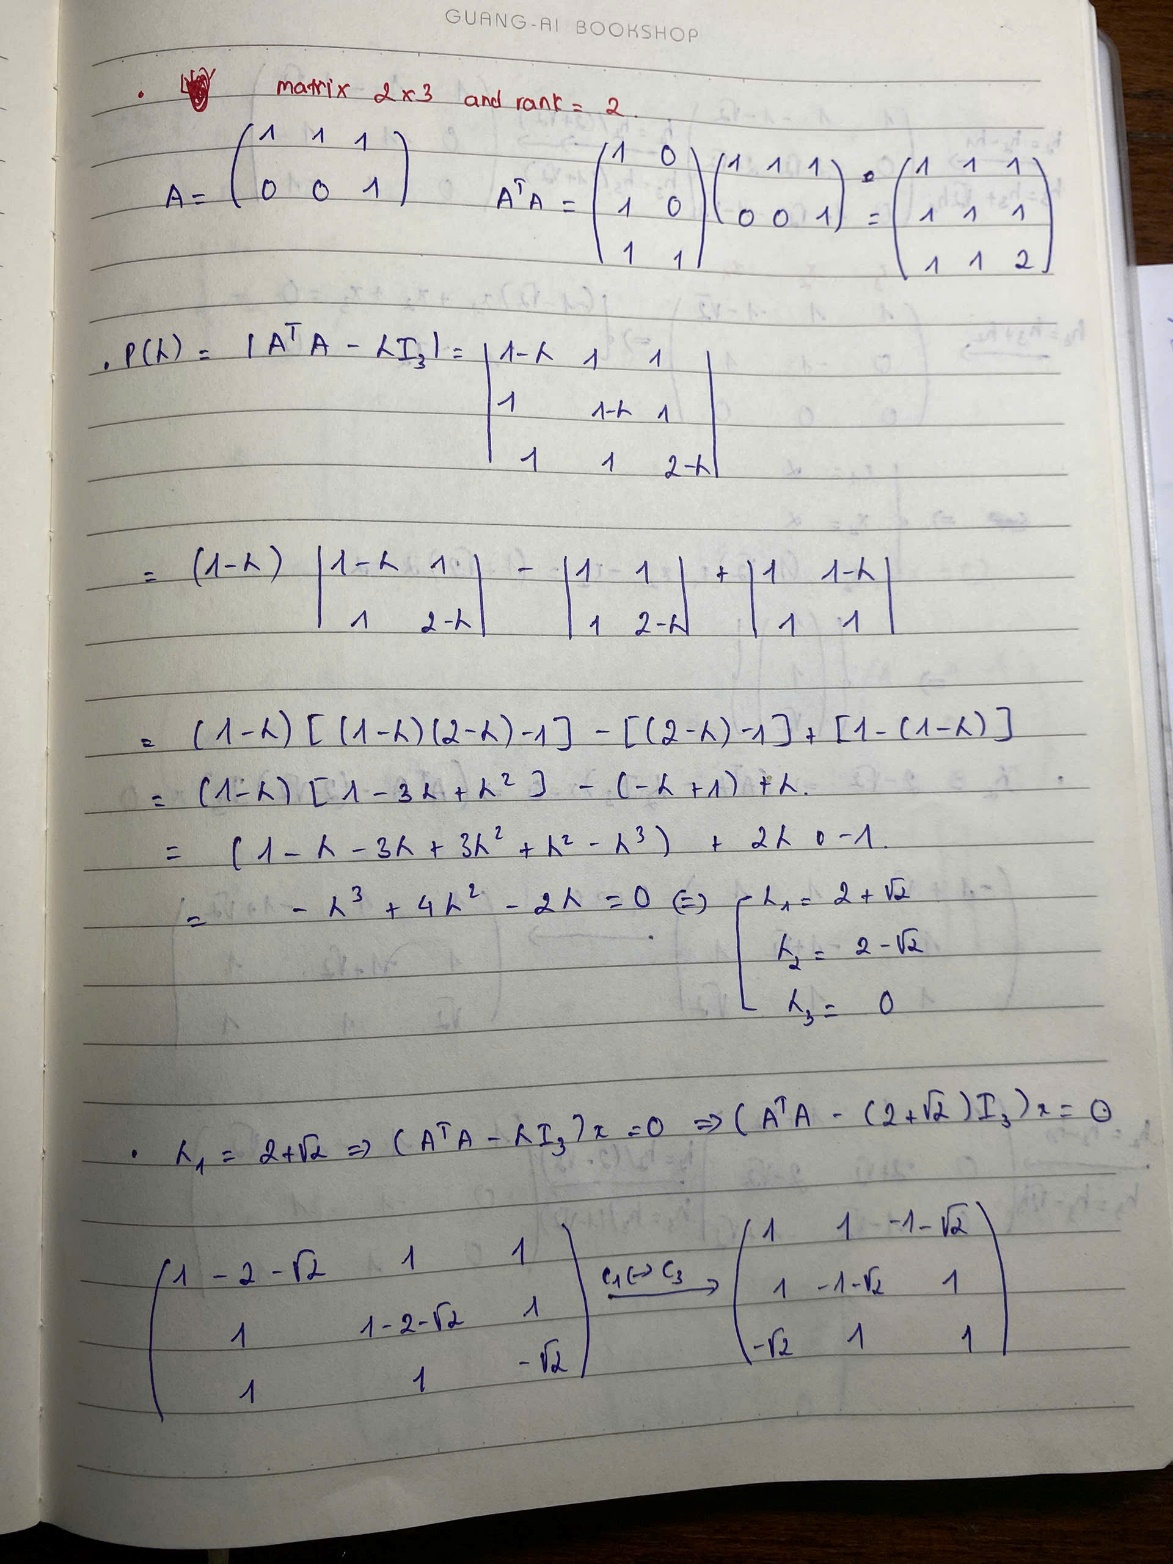 GUANG-AI BOOKSHOP
. matrix 2x3 and rank = 2.
A = (1 1 1
0 0 1) AᵀA = (1 0
1 0
1 1) (1 1 1
0 0 1) = (1 1 1
1 1 1
1 1 2)
. P(λ) = |AᵀA - λI₃| = |1-λ 1 1
1 1-λ 1
1 1 2-λ|
= (1-λ) |1-λ 1
1 2-λ| - |1 1
1 2-λ| + |1 1-λ
1 1|
= (1-λ) [(1-λ)(2-λ)-1] - [(2-λ)-1] + [1-(1-λ)]
= (1-λ) [1 - 3λ + λ²] - (-λ+1) + λ.
= (1 - λ - 3λ + 3λ² + λ² - λ³) + 2λ - 1.
= - λ³ + 4λ² - 2λ = 0 (=) [λ₁ = 2 + √2
λ₂ = 2 - √2
λ₃ = 0
. λ₁ = 2+√2 => (AᵀA - λI₃)x = 0 => (AᵀA - (2+√2)I₃)x = 0
(1 - 2 - √2 1 1
1 1-2-√2 1
1 1 -√2) C₁↔C₃ → (1 1 -1-√2
1 -1-√2 1
-√2 1 1)